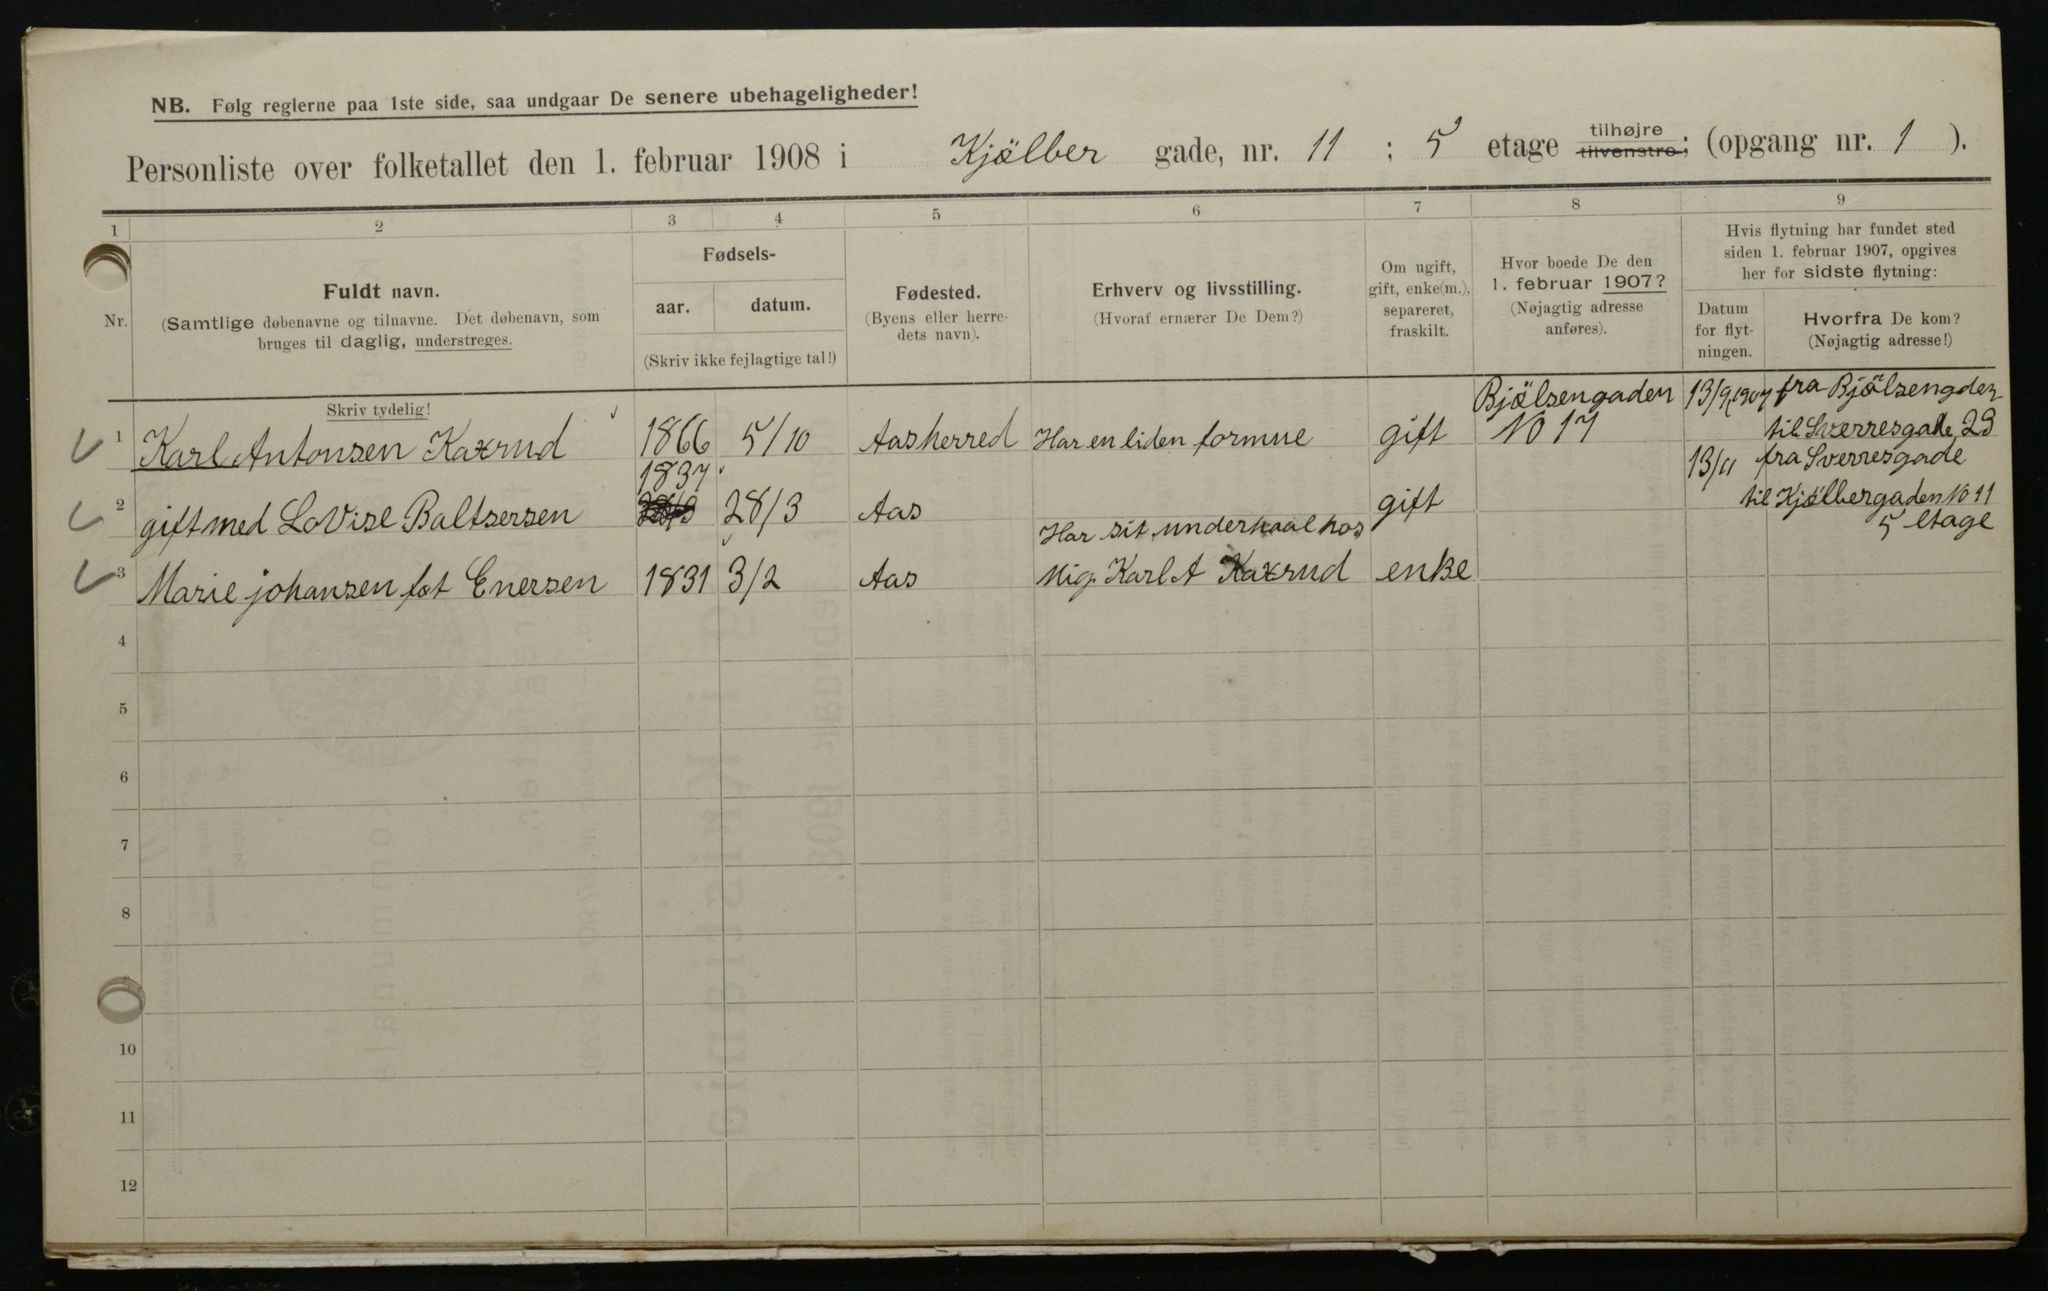 NB. Følg reglerne paa 1ste side, saa undgaar De senere ubehageligheder!
Personliste over folketallet den 1. februar 1908 i Kjölber gade, nr. 11 ; 5 etage tilhøjre tilvenstre; (opgang nr. 1 ).
1 2 3 4 5 6 7 8 9
Nr.
Fuldt navn.
(Samtlige døbenavne og tilnavne. Det døbenavn, som
bruges til daglig, understreges.
Skriv tydelig!
Fødsels-
aar. datum.
(Skriv ikke fejlagtige tal!)
Fødested.
(Byens eller herre-
dets navn).
Erhverv og livsstilling.
(Hvoraf ernærer De Dem?)
Om ugift,
gift, enke(m.),
separeret,
fraskilt.
Hvor boede De den
1. februar 1907?
(Nøjagtig adresse
anføres).
Hvis flytning har fundet sted
siden 1. februar 1907, opgives
her for sidste flytning:
Datum
for flyt-
ningen.
Hvorfra De kom?
(Nøjagtig adresse!)
Bjölsengaden 13/9 1907 fra Bjölsengden
1 Karl Antonsen Kaxrud 1866 5/10 Aasherred Har en liden formue gift No 17 til Sverresgade 23
1837 13/11 fra Sverresgade
2 gift med LoVise Baltsersen 28/3 Aas gift til Kjölbergaden No 11
Har sit underhaal hos 5 Etage
3 Marie johansen föt Enersen 1831 3/2 Aas Mig Karl A Kaxrud enke
4
5
6
7
8
10
11
12